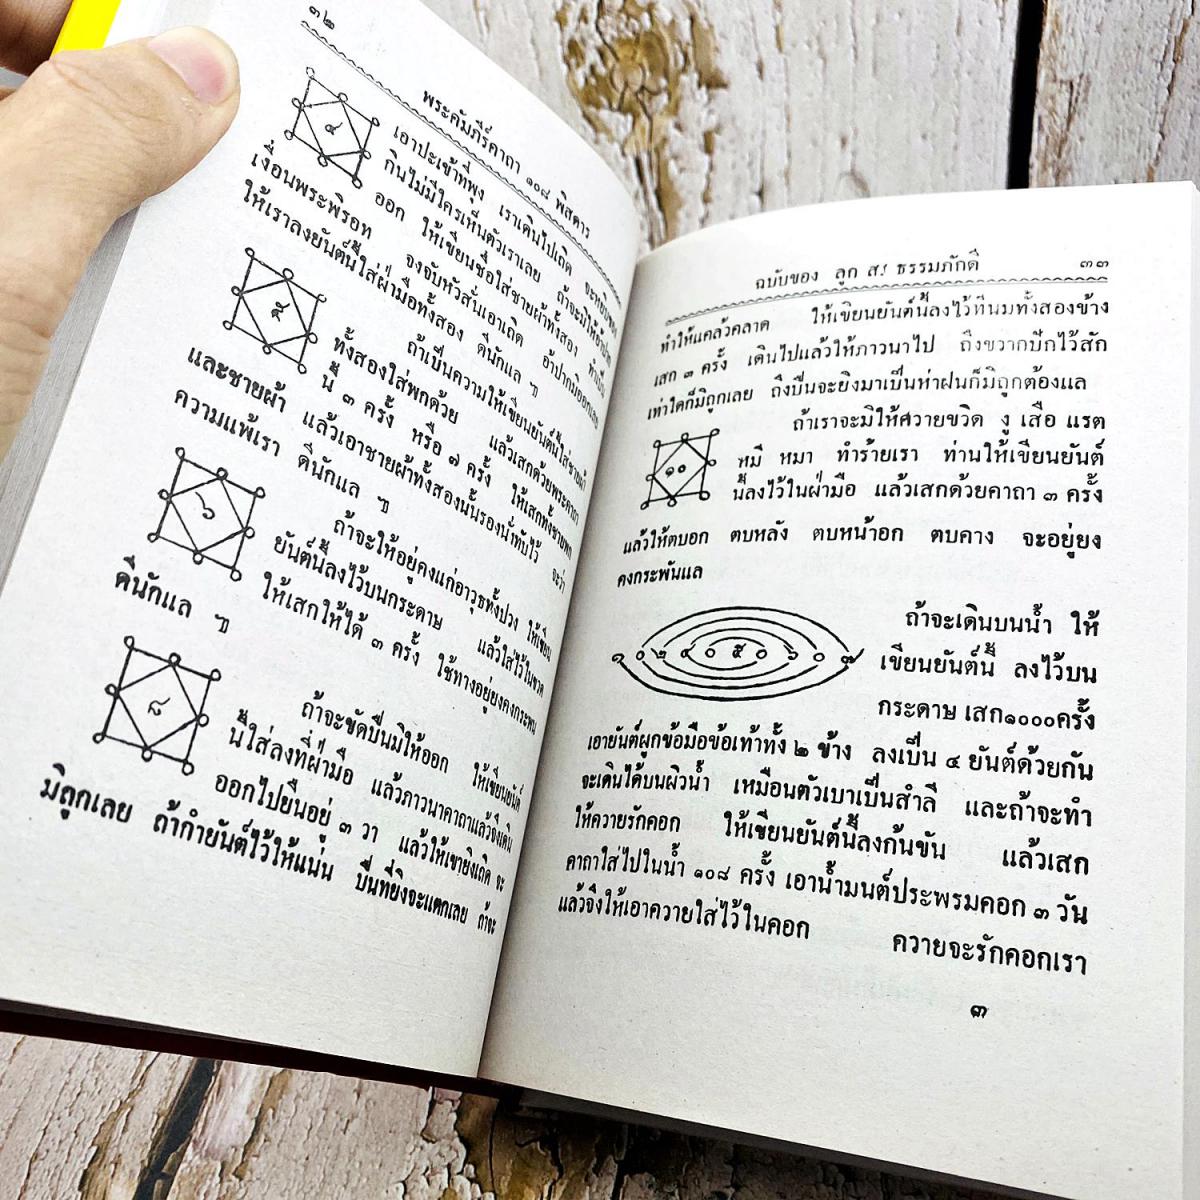 ๓๒
พระคัมภีร์คาถา ๑๐๘ พิสดาร
๔
เอาปะเข้าที่พุง เราเดินไปเถิด จะหยิบ
กินไม่มีใครเห็นตัวเราเลย ถ้าจะมิให้
ออก ให้เขียนชื่อใส่ชายผ้าทั้งสอง
เงื่อนพระพิรอท จงจับหัวสั่นเอาเถิด อ้าปากมิออกเลย
ให้เราลงยันต์นี้ใส่ฝ่ามือทั้งสอง ดีนักแล ฯ
๕
ถ้าเป็นความให้เขียนยันต์นี้ใส่ชายผ้า
ทั้งสองใส่พกด้วย แล้วเสกด้วยพระคาถา
นี้ ๓ ครั้ง หรือ ๗ ครั้ง ให้เสกทั้งชายพก
และชายผ้า แล้วเอาชายผ้าทั้งสองนั้นรองนั่งทับไว้ จะว่า
ความแพ้เรา ดีนักแล ฯ
๖
ถ้าจะให้อยู่คงแก่อาวุธทั้งปวง ให้เขียน
ยันต์นี้ลงไว้บนกระดาษ แล้วใส่ไว้ในขวด
ให้เสกให้ได้ ๓ ครั้ง ใช้ทางอยู่ยงคงกระพัน
ดีนักแล ฯ
๘
ถ้าจะขัดปืนมิให้ออก ให้เขียนยันต์
นี้ใส่ลงที่ฝ่ามือ แล้วภาวนาคาถาแล้วจึงเดิน
ออกไปยืนอยู่ ๓ วา แล้วให้เขายิงเถิด จะ
มิถูกเลย ถ้ากำยันต์ไว้ให้แน่น ปืนที่ยิงจะแตกเลย ถ้าจะ
ฉบับของ ลูก ส. ธรรมภักดี ๓๓
ทำให้แคล้วคลาด ให้เขียนยันต์นี้ลงไว้ที่นมทั้งสองข้าง
เสก ๓ ครั้ง เดินไปแล้วให้ภาวนาไป ถึงขวากปักไว้สัก
เท่าใดก็มิถูกเลย ถึงปืนจะยิงมาเป็นห่าฝนก็มิถูกต้องแล
๑๐
ถ้าเราจะมิให้ควายขวิด งู เสือ แรด
หมี หมา ทำร้ายเรา ท่านให้เขียนยันต์
นี้ลงไว้ในฝ่ามือ แล้วเสกด้วยคาถา ๓ ครั้ง
แล้วให้ตบอก ตบหลัง ตบหน้าอก ตบคาง จะอยู่ยง
คงกระพันแล
ถ้าจะเดินบนน้ำ ให้
เขียนยันต์นี้ ลงไว้บน
กระดาษ เสก๑๐๐๐ครั้ง
เอายันต์ผูกข้อมือข้อเท้าทั้ง ๒ ข้าง ลงเป็น ๔ ยันต์ด้วยกัน
จะเดินได้บนผิวน้ำ เหมือนตัวเบาเป็นสำลี และถ้าจะทำ
ให้ควายรักคอก ให้เขียนยันต์นี้ลงก้นขัน แล้วเสก
คาถาใส่ไปในน้ำ ๑๐๘ ครั้ง เอาน้ำมนต์ประพรมคอก ๓ วัน
แล้วจึงให้เอาควายใส่ไว้ในคอก ควายจะรักคอกเรา
๓